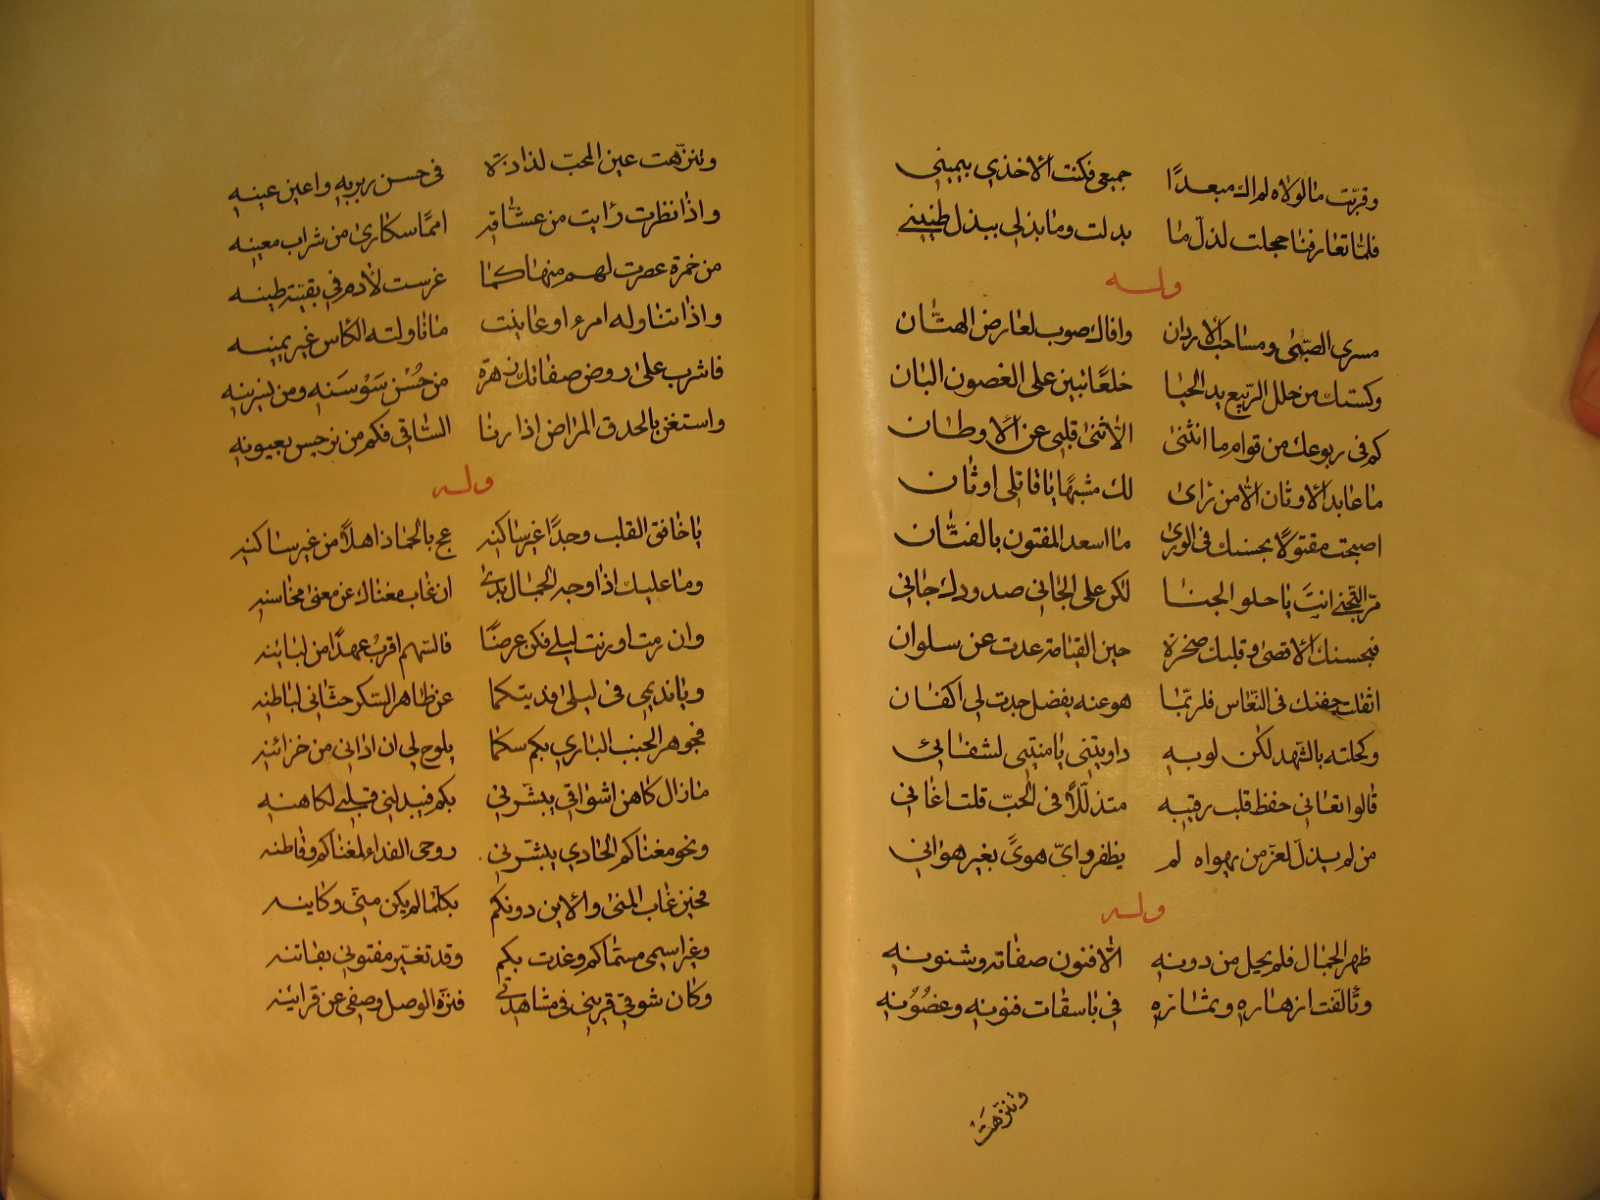 وقربت مالولاه لم اك مبعدًا جميعى فكنت الاخذى بيمينى
فلما تعارفنا حجلت لذل ما بدلت وما بذلى ببذل طنينى
وله
مسرى الصبى ومساحب الاردان وافاك صوب لعارض الهتّان
وكستك من خلل الربيع يد الحيا خلعًا تبين على الغصون البان
كم فى ربوعك من قوام ما انثنى الا ثنى قلبى عن الاوطان
ما عابد الاوثان الا من رأى لك مشبهًا يا قاتلى اوثان
اصبحت مقتولًا بحسنك فى الورى ما اسعد المفتون بالفتّان
مرّ التجنى انت يا حلو الجنا لكن على الجانى صدودك جانى
فبحسنك الاقصى وقلبك صخرة حين القيامة عدت عن سلوان
اثقلت جفنك فى النعاس فلربّما هو عنه يفضل جدت لى اكفان
وكحلته بالشهد لكن لو به داويتنى يا منيتى لشفانى
قالوا تعانى حفظ قلب رقيبه متذلّلًا فى الحبّ قلت اغانى
من لم يذل لعزّ من يهواه لم يظفر واىّ هوىً بغير هوانى
وله
ظهر الجمال فلم يحل من دونه الا فنون صفاته وشئونه
وتألفت ازهاره وثماره فى باسقات فنونه وغصُونه
وتنزّهَتْ
وتنزّهت عين المحبّ لذاذة فى حسن ربربه واعين عينه
واذا نظرت رايت من عشّاقه امما سكارى من شراب معينه
من خمرة عصرت لهم منها كما غرست لادم فى بقيّة طينه
واذا تناوله امرء اوعاينت ما ناولته الكاس غير يمينه
فاشرب على روض صفاتك زهرة من حُسْن سَوْسَنه ومن نسرينه
واستغن بالحدق المراض اذا رنا الساقى فكم من نرجس بعيونه
وله
يا خافق القلب وجدًا غير ساكنه عج بالحما ذاهلًا من غير ساكنه
وما عليك اذا وجه الجمال بدى ان غاب مغناك عن معنى محاسنه
وان رمت اورنت ليلى فكن عرضًا فالسهم اقربُ عهدًا من لبائنه
ويا نديمى فى ليلى فديتكما عن ظاهر السكر حثانى لباطنه
فجوهر الحبب البارى بكم سكما يلوح لى ان ادانى من خزائنه
مازال كاهن اشواقى يبشرنى بكم فيبدلنى قلبى لكاهنه
ونحو مغناكم الحادى يبشرنى روحى الفداء لمغناكم وقاطنه
فحين غاب المنى والاين دونكم بكلّما لم يكن منّى وكاينه
وغير اسمى مسمّاكم وغدت بكم وقد تغيّر مفتونى بفاتنه
وكان شوقى قرينى فى مشاهدتى فنزّه الوصل وصفى عن قراينه